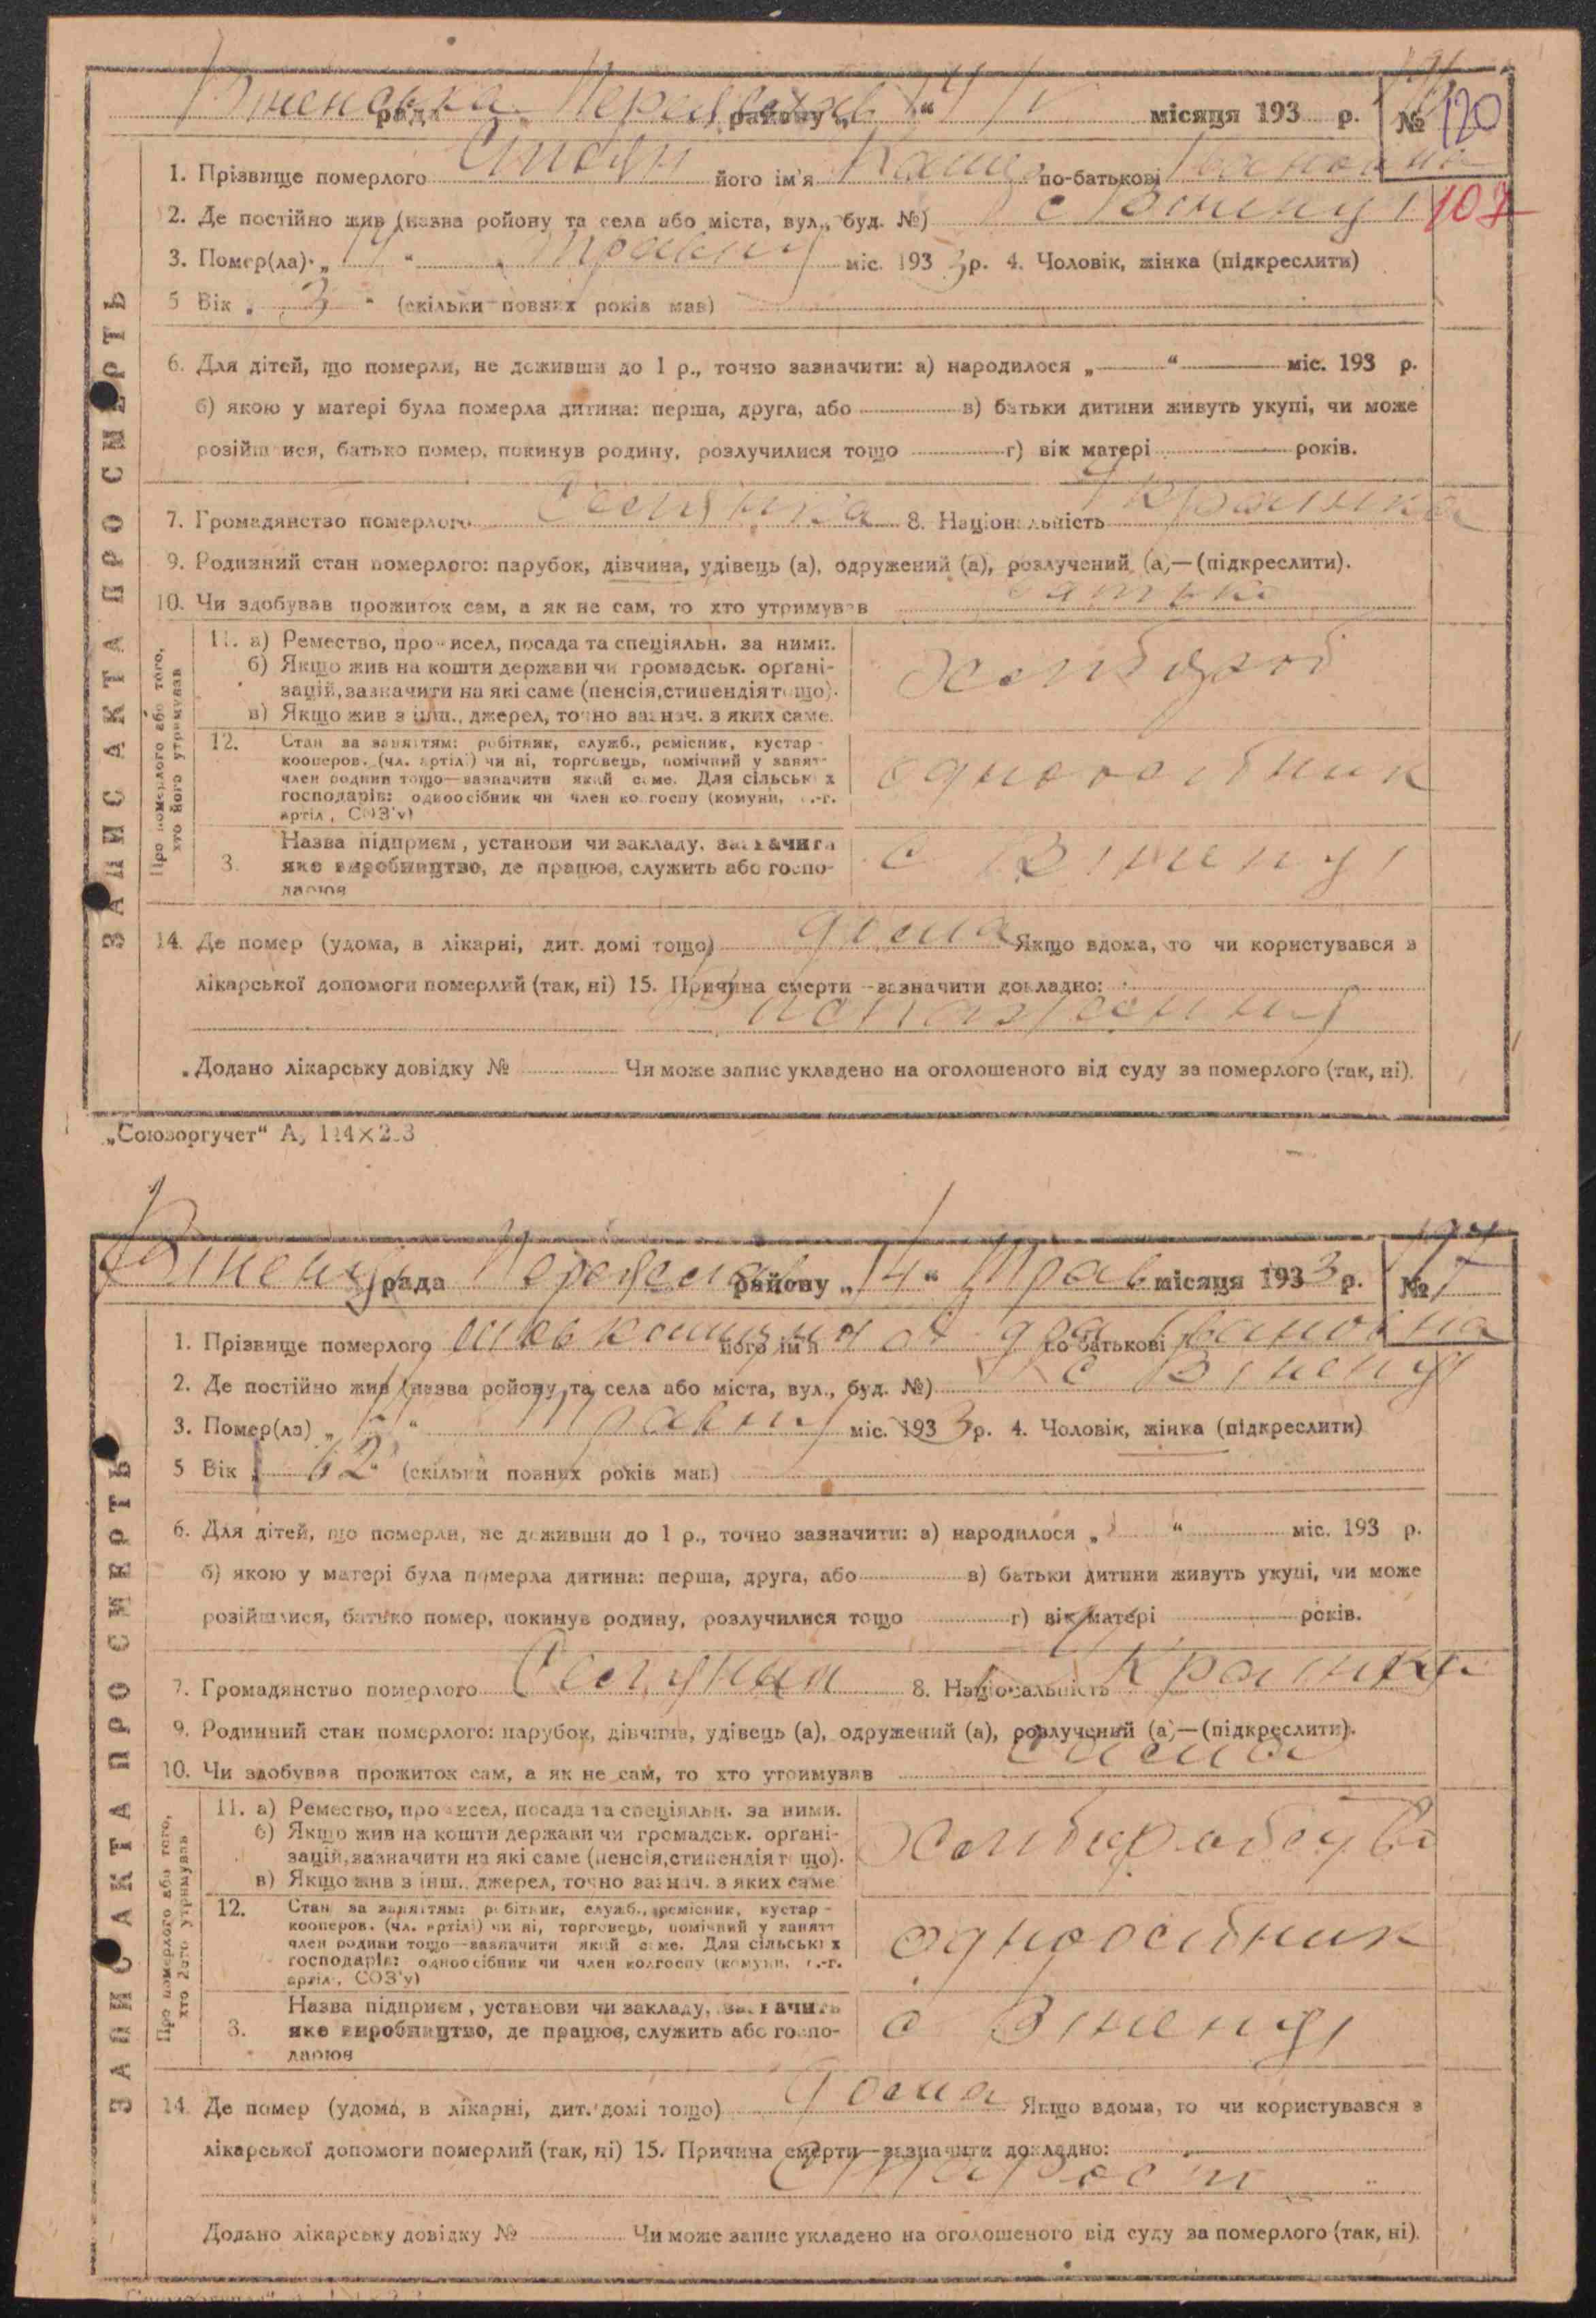 рада району „14“ V місяця 193 р. № 120
1. Прізвище померлого його ім'я по-батькові Івановна
107
2. Де постійно жив (назва ройону та села або міста, вул., буд. №) с Вінинці
3. Помер(ла) „14“ травня міс. 1933 р. 4. Чоловік, жінка (підкреслити)
5 Вік „3“ (скільки повних років мав)
6. Для дітей, що померли, не доживши до 1 р., точно зазначити: а) народилося „ “ міс. 193 р.
б) якою у матері була померла дитина: перша, друга, або в) батьки дитини живуть укупі, чи може
розійшлися, батько помер, покинув родину, розлучилися тощо г) вік матері років.
7. Громадянство померлого 8. Національність Українка
9. Родинний стан померлого: парубок, дівчина, удівець (а), одружений (а), розлучений (а)—(підкреслити).
10. Чи здобував прожиток сам, а як не сам, то хто утримував батько
ЗАПИС АКТА ПРО СМЕРТЬ
Про померлого або того, хто його утримував
11. а) Ремество, промисел, посада та спеціяльн. за ними.
б) Якщо жив на кошти держави чи громадськ. органі-
зацій, зазначити на які саме (пенсія, стипендія тощо).
в) Якщо жив з інш., джерел, точно вазнач. з яких саме.
хлібороб
12. Стан за заняттям: робітник, служб., ремісник, кустар -
кооперов. (чл. артілі) чи ні, торговець, помічний у занят-
член родини тощо—вазначити який саме. Для сільських
господарів: одноосібник чи член колгоспу (комуни, с.-г.
артіл, СОЗ'у)
одноосібник
3. Назва підприєм, установи чи закладу, зазначити
яке виробництво, де працює, служить або госпо-
дарює
с
14. Де помер (удома, в лікарні, дит. домі тощо) дома Якщо вдома, то чи користувався з
лікарської допомоги померлий (так, ні) 15. Причина смерти—зазначити докладно:
Додано лікарську довідку № Чи може запис укладено на оголошеного від суду за померлого (так, ні).
„Союзоргучет“ А
рада району „14“ Трав місяця 1933 р. №
1. Прізвище померлого його ім'я по батькові Івановна
2. Де постійно жив (назва ройону та села або міста, вул., буд. №) с
3. Помер(ла) „ “ травня міс. 1933 р. 4. Чоловік, жінка (підкреслити)
5 Вік 62 (скільки повних років мав)
6. Для дітей, що померли, не доживши до 1 р., точно зазначити: а) народилося „ “ міс. 193 р.
б) якою у матері була померла дитина: перша, друга, або в) батьки дитини живуть укупі, чи може
розійшлися, батько помер, покинув родину, розлучилися тощо г) вік матері років.
7. Громадянство померлого 8. Національність Українка
9. Родинний стан померлого: парубок, дівчина, удівець (а), одружений (а), розлучений (а)—(підкреслити).
10. Чи здобував прожиток сам, а як не сам, то хто утримував
ЗАПИС АКТА ПРО СМЕРТЬ
Про померлого або того, хто його утримував
11. а) Ремество, промисел, посада та спеціяльн. за ними.
б) Якщо жив на кошти держави чи громадськ. органі-
зацій, зазначити на які саме (пенсія, стипендія тощо).
в) Якщо жив з інш., джерел, точно вазнач. з яких саме
12. Стан за заняттям: робітник, служб., ремісник, кустар -
кооперов. (чл. артілі) чи ні, торговець, помічний у занятт
член родини тощо—вазначити який саме. Для сільських
господарів: одноосібник чи член колгоспу (комуни, с.-г.
артіл, СОЗ'у)
одноосібник
3. Назва підприєм, установи чи закладу, зазначить
яке виробництво, де працює, служить або госпо-
дарює
с
14. Де помер (удома, в лікарні, дит. домі тощо) дома Якщо вдома, то чи користувався з
лікарської допомоги померлий (так, ні) 15. Причина смерти—зазначити докладно:
Старость
Додано лікарську довідку № Чи може запис укладено на оголошеного від суду за померлого (так, ні).